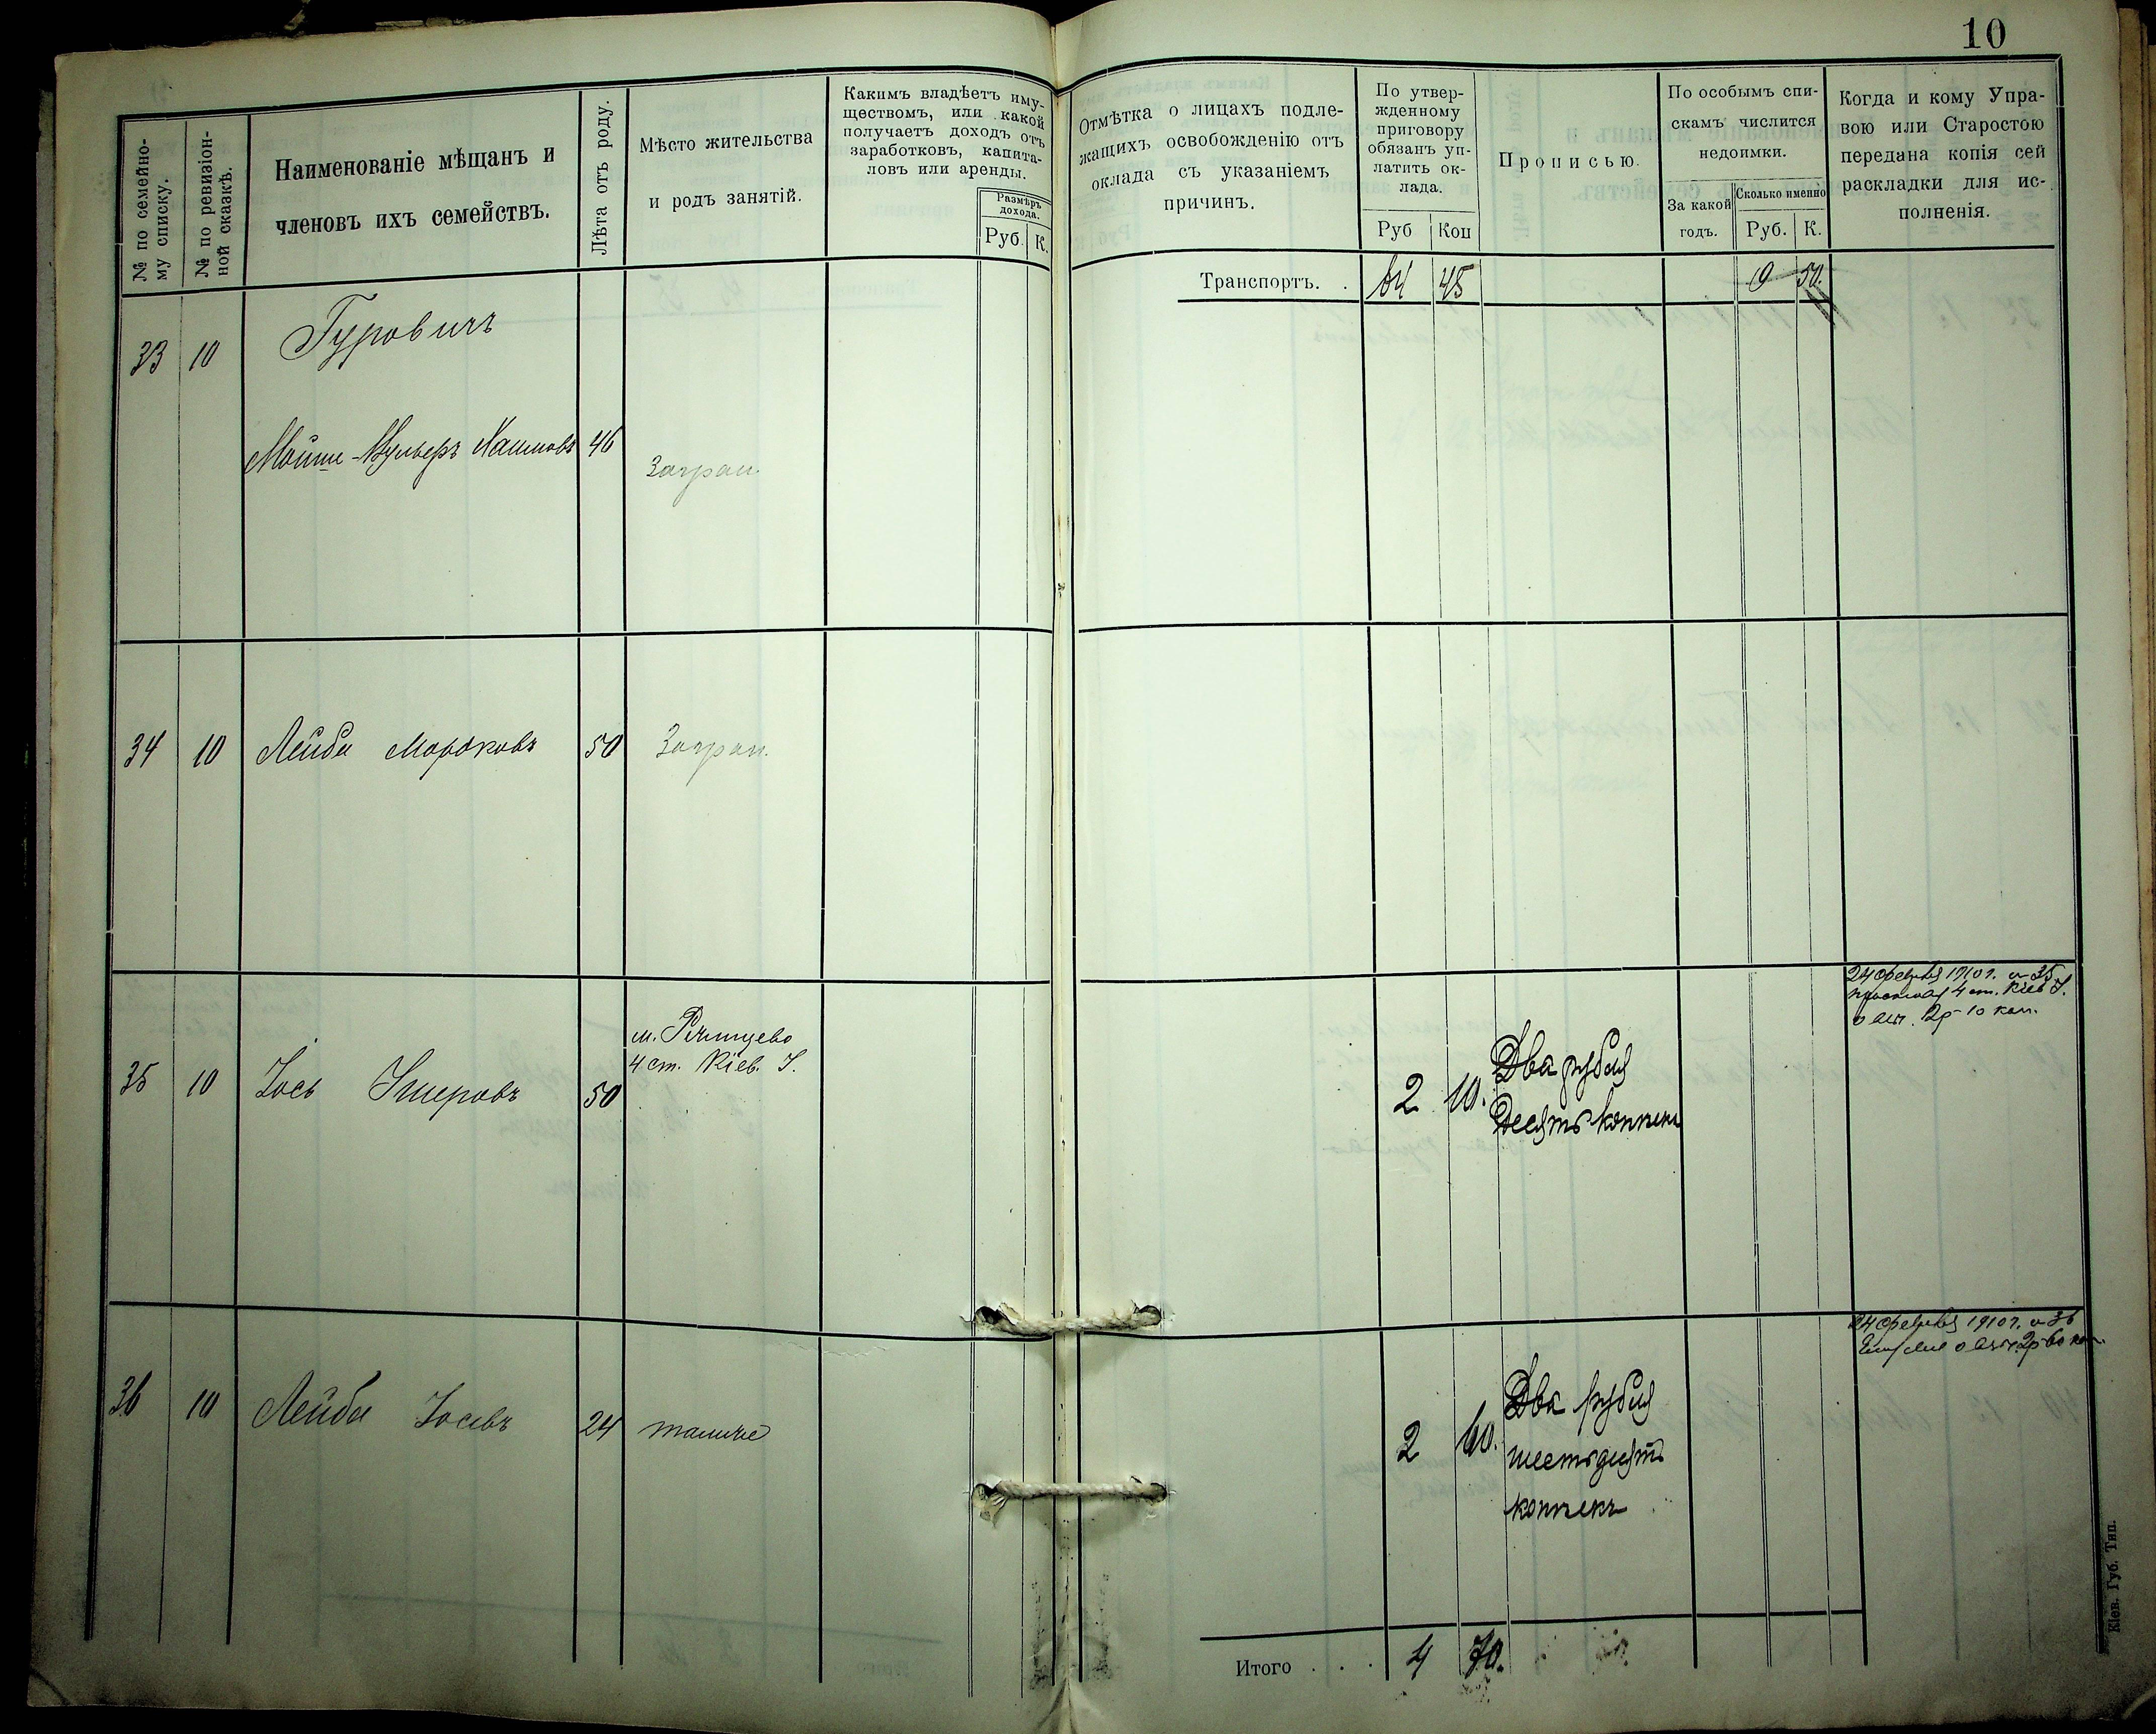 10
№ по семейно-
му списку.
№ по ревизіон-
ной сказкѣ.
Наименованіе мѣщанъ и
членовъ ихъ семействъ.
Лѣта отъ роду.
Мѣсто жительства
и родъ занятій.
Какимъ владѣетъ иму-
ществомъ, или какой
получаетъ доходъ отъ
заработковъ, капита-
ловъ или аренды.
Размѣръ
дохода.
Руб. К.
Отмѣтка о лицахъ подле-
жащихъ освобожденію отъ
оклада съ указаніемъ
причинъ.
По утвер-
жденному
приговору
обязанъ уп-
латить ок-
лада.
Руб Коп
Прописью.
По особымъ спи-
скамъ числится
недоимки.
За какой
годъ.
Сколько именно
Руб. К.
Когда и кому Упра-
вою или Старостою
передана копія сей
раскладки для ис-
полненія.
Транспортъ. . 64 45 9 50.
33 10 Гуровичъ
Мойше- Хаимовъ 46 Загран.
34 10 Лейба Мордковъ 50 Загран.
35 10 Іось 50
4 ст. Кіев. У.
2 10. Два рубля
десять копѣекъ
24 февраля 1910 г. № 35
4 ст. Кіев У.
2р 10 коп.
36 10 Лейба Іосевъ 24 тамже
2 60. Два рубля
шестьдесятъ
копѣекъ
24 февраля 1910 г. № 36
2р 60 коп.
Итого . . . 4 70.
Кіев. Губ. Тип.